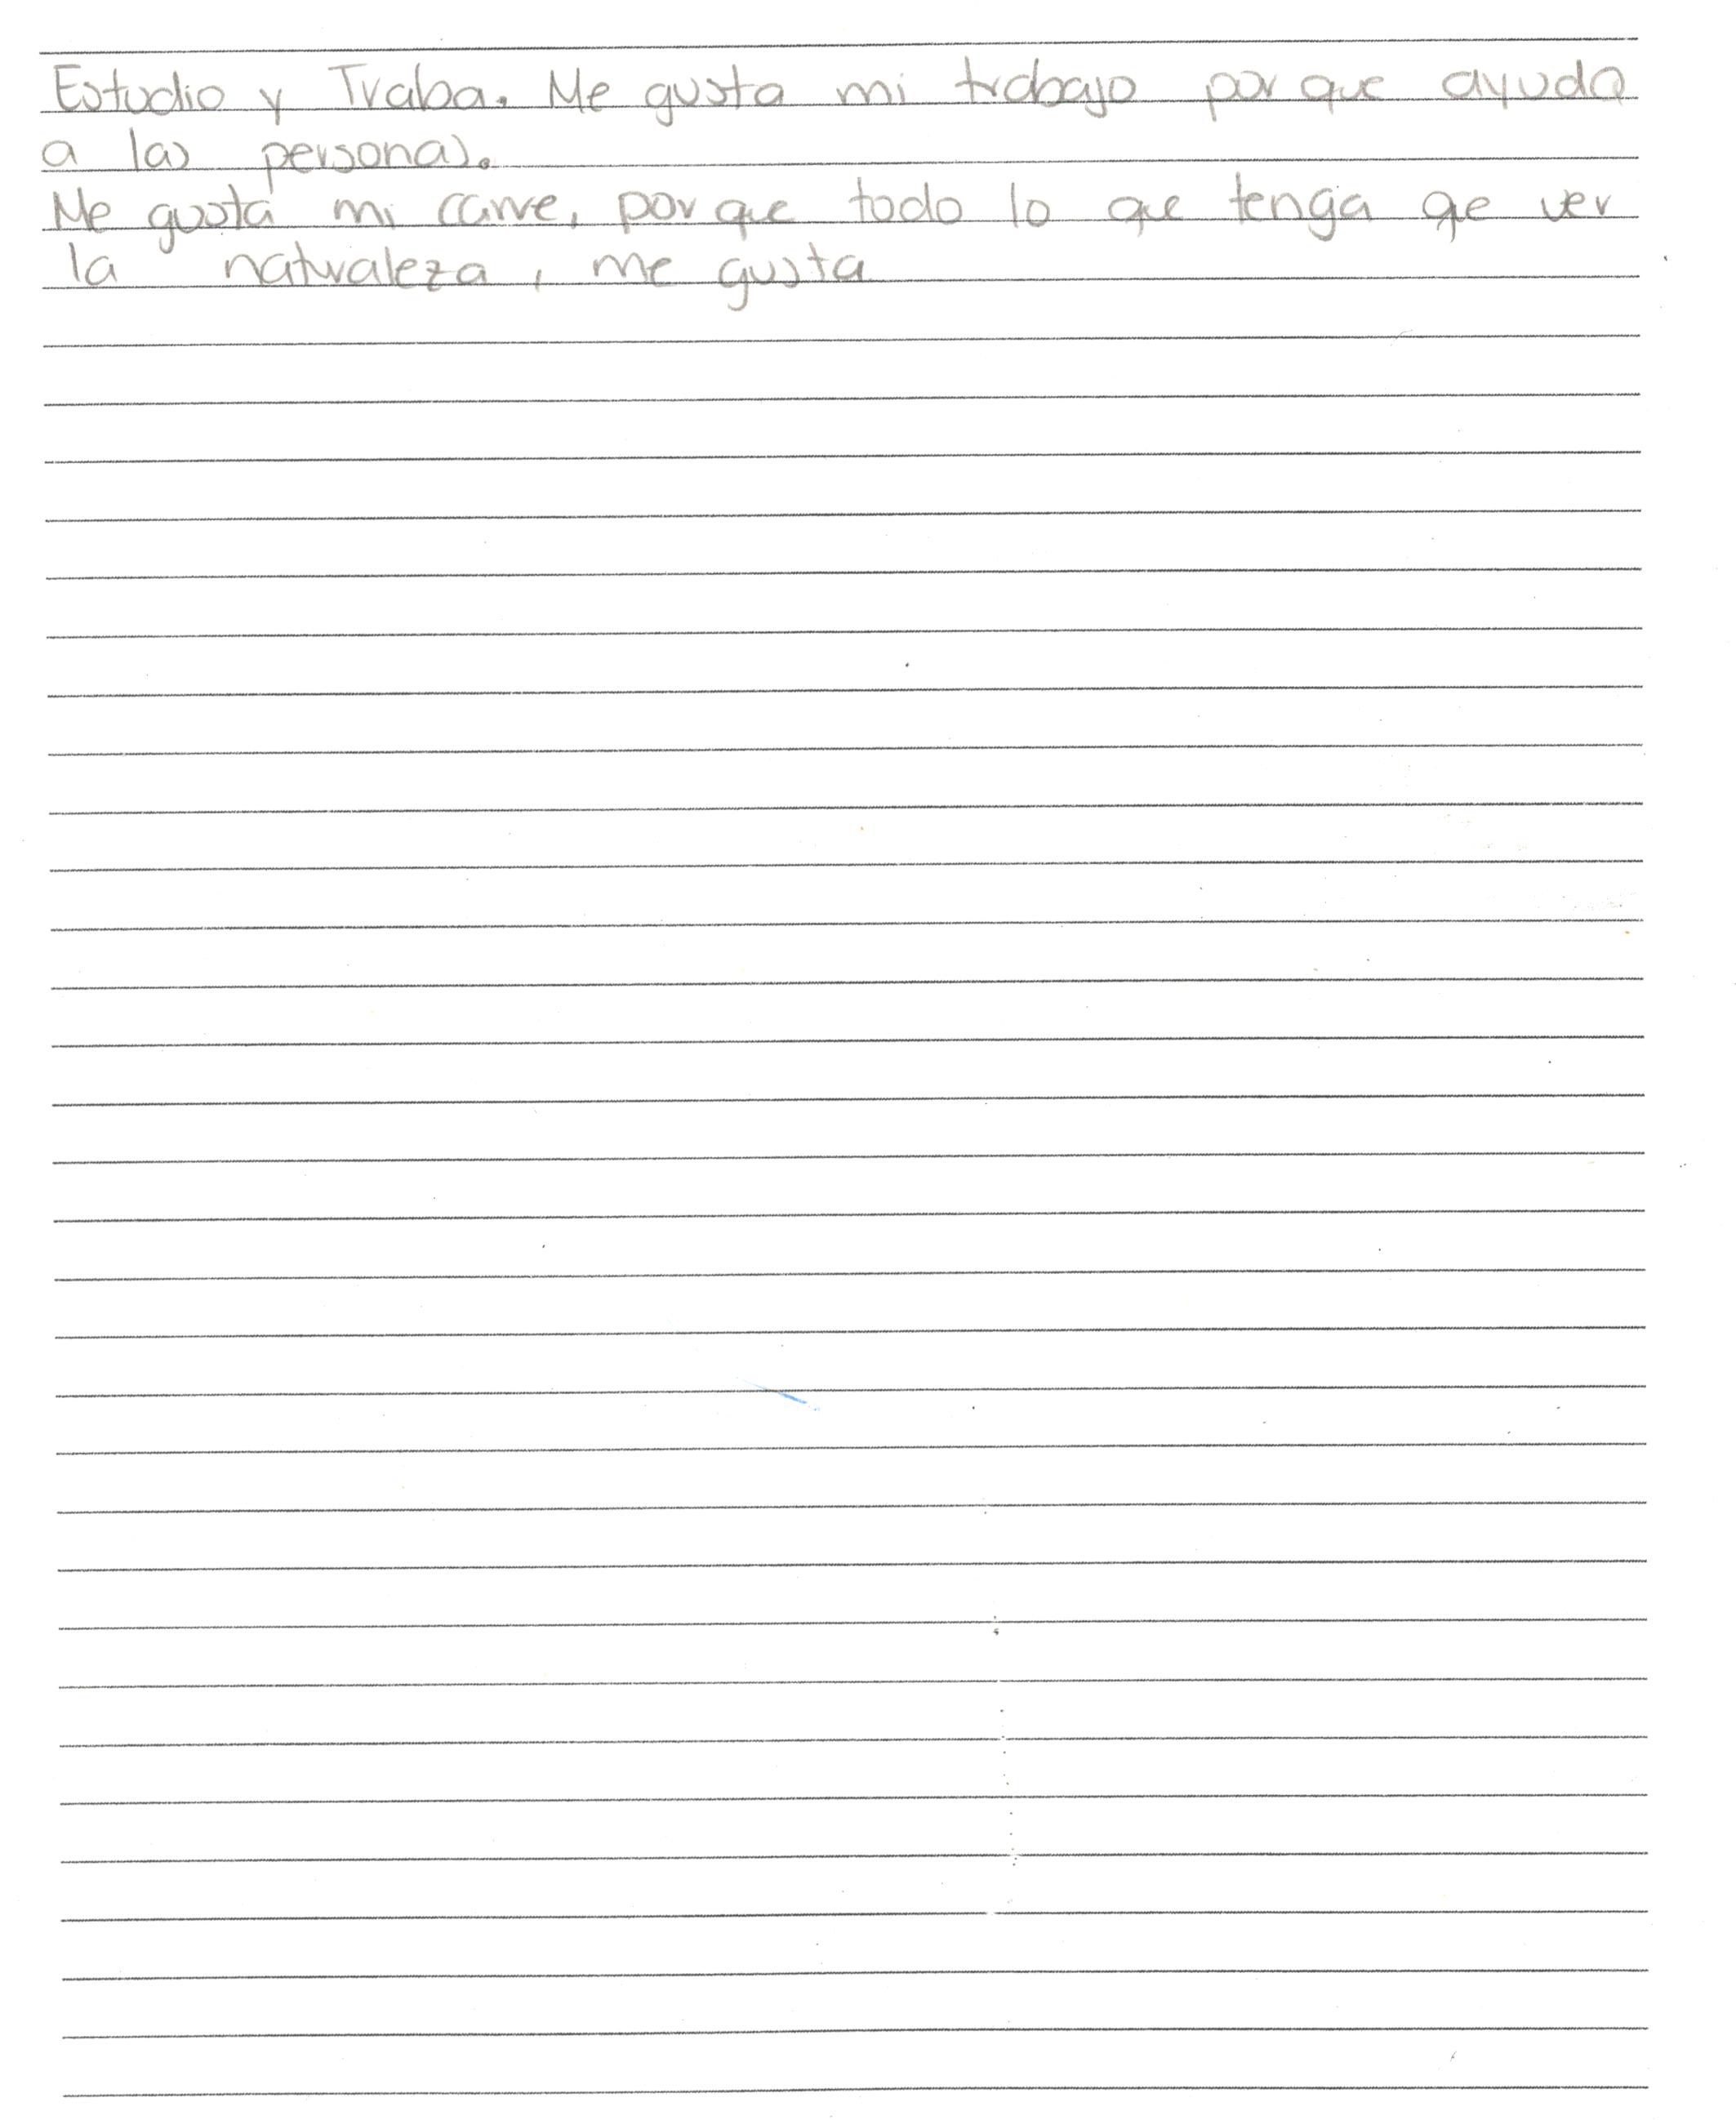 Estudio y Traba. Me gusta mi trabajo por que ayudo
a las personas.
Me gusta mi carre, por que todo lo que tenga qe ver
la naturaleza, me gusta